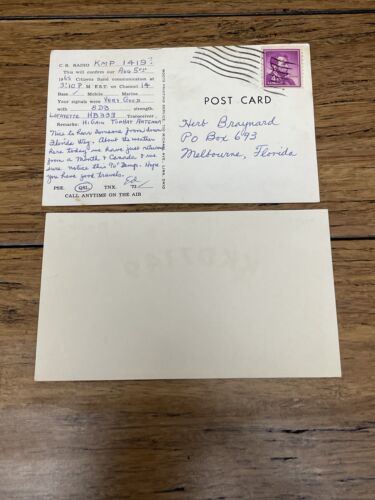 C. B. RADIO KMP 1419
This will confirm our Aug 5th
1965 Citizens Band communication at
3:10 P M EST. on Channel 14.
Base ✓ Mobile Marine
Your signals were Very Good
with 8 DB strength.
LAFAYETTE HB333 Transceiver.
Remarks: Hi Gain Tomcat Antenna
Nice to have someone from down
Florida Way. About the weather
here today we have just returned
from a Month & Canada & we
sure notice this 90° Temp. Hope
you have good travels.
Ed
PSE. QSL TNX. 73
CALL ANYTIME ON THE AIR
POST CARD
Herb Braynard
PO Box 693
Melbourne, Florida
KKD7149